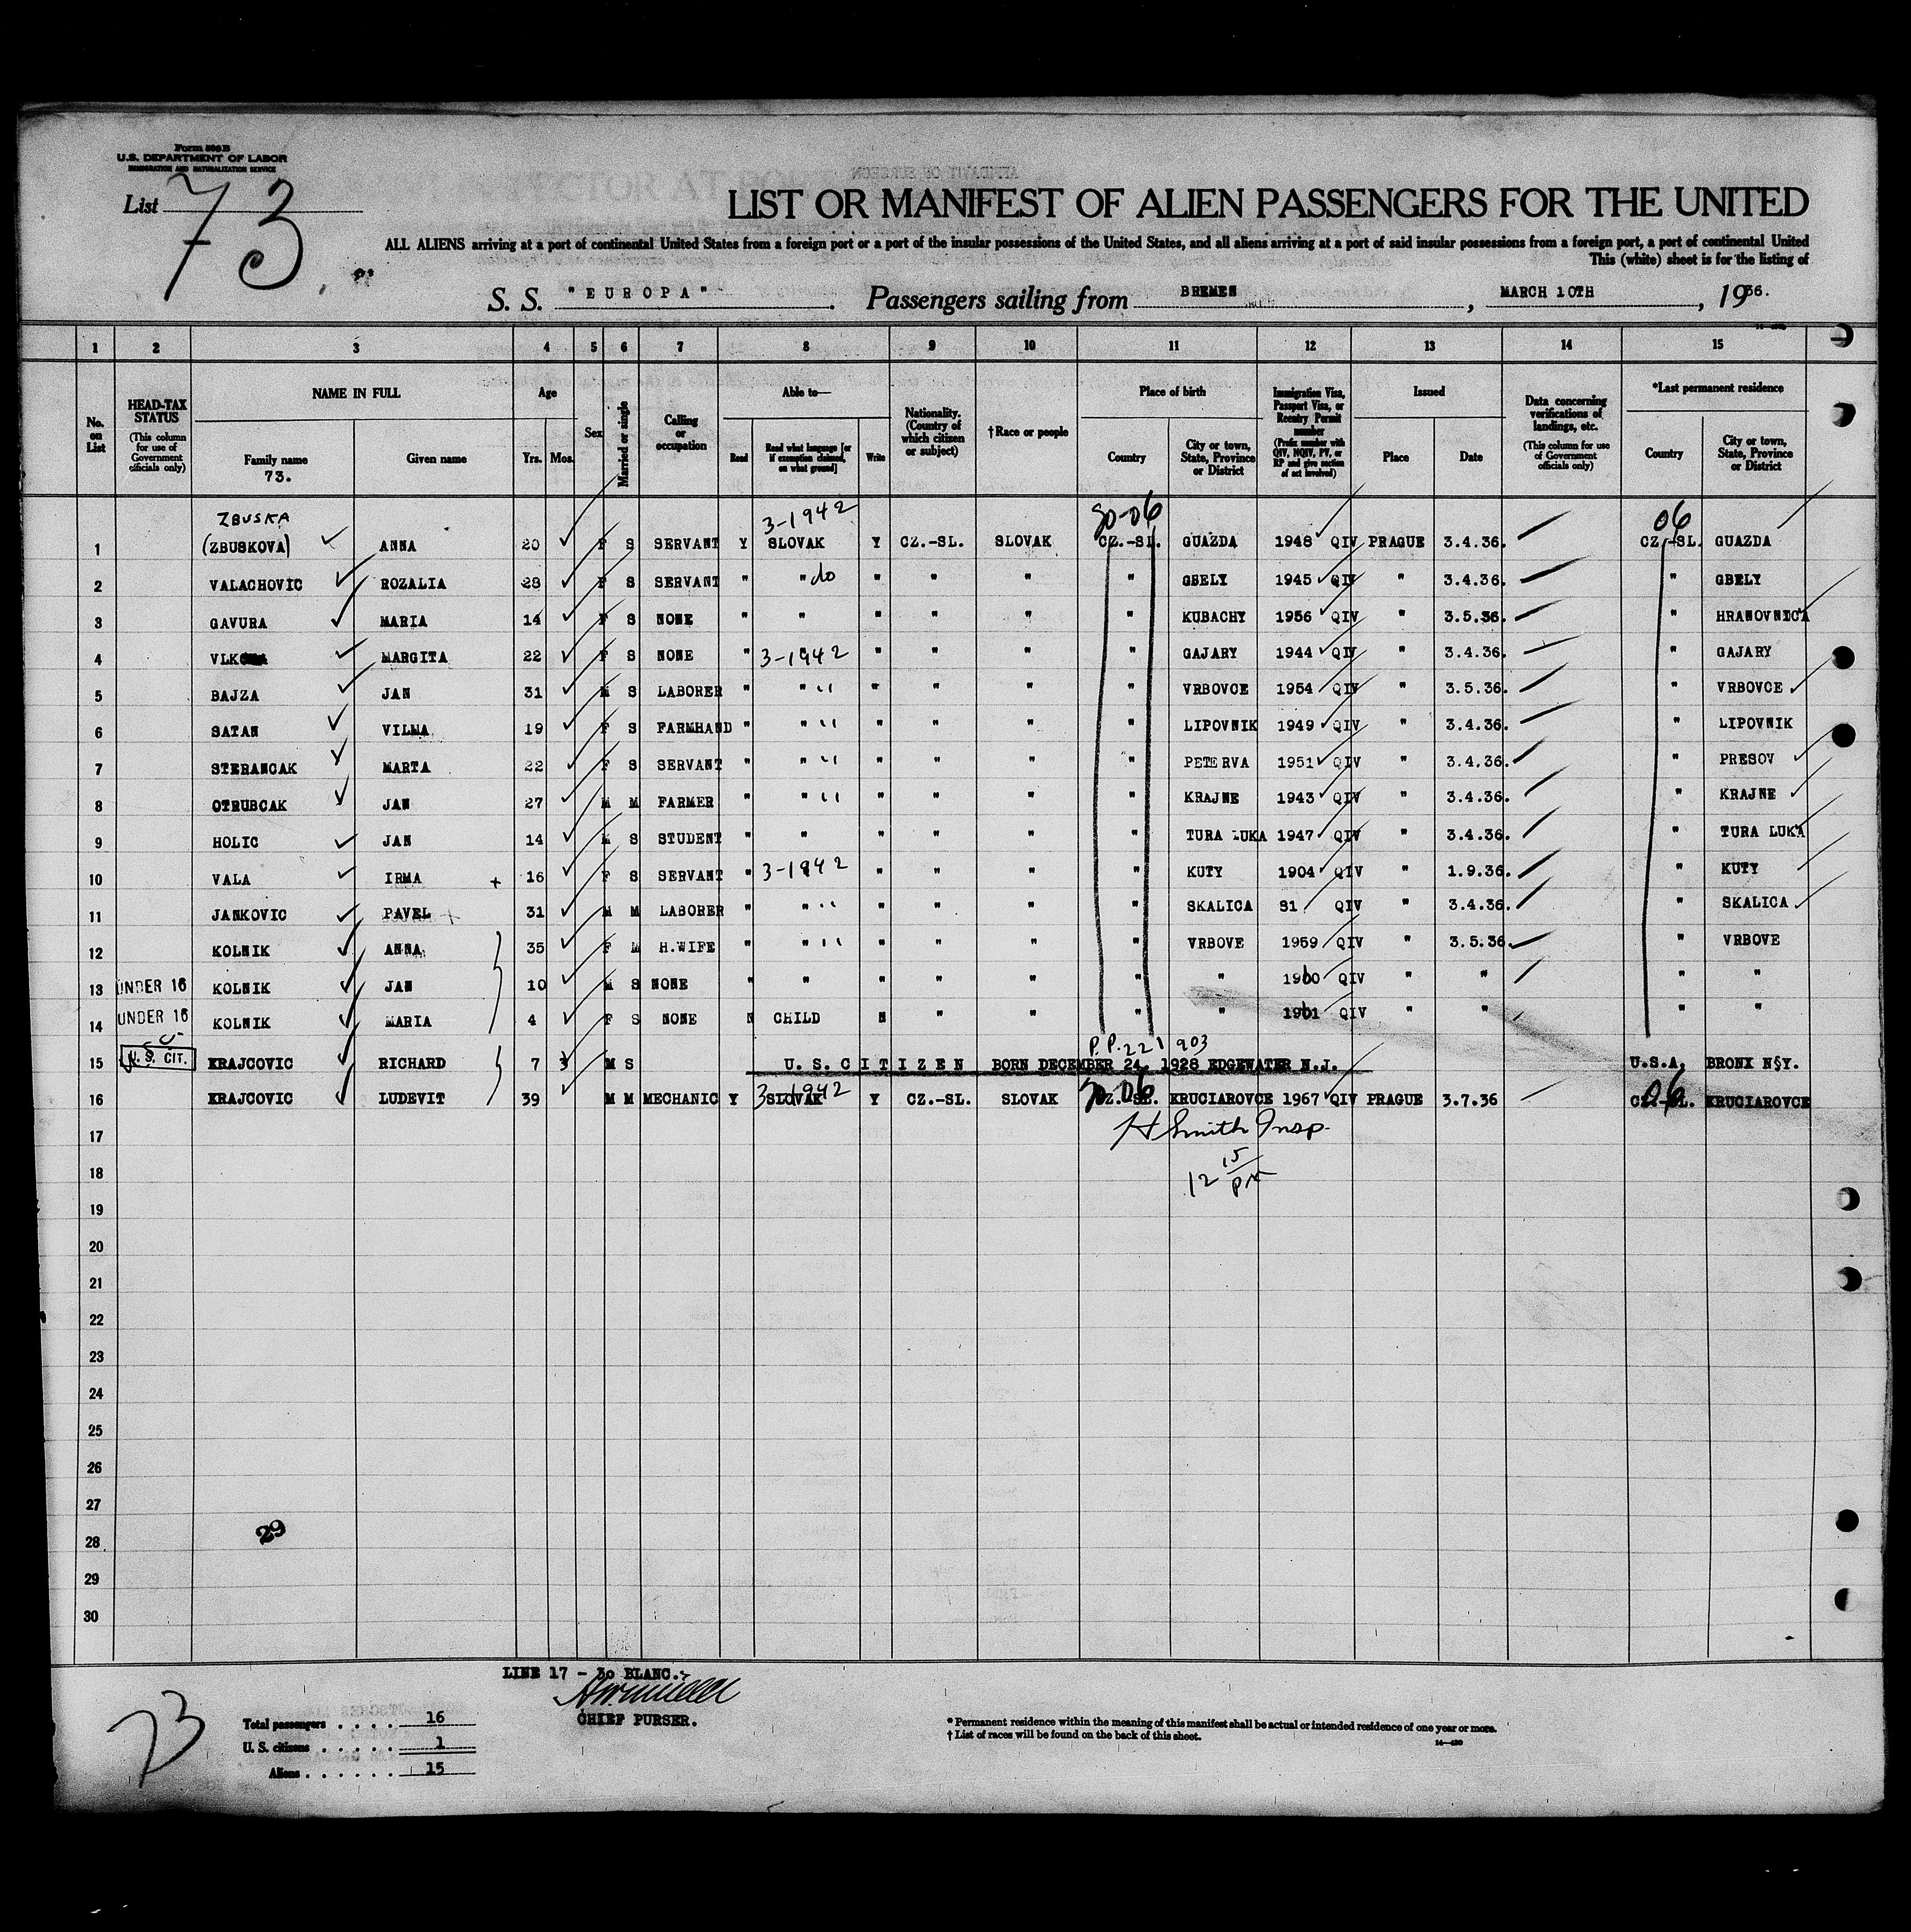 Form 500B
U.S. DEPARTMENT OF LABOR
IMMIGRATION AND NATURALIZATION SERVICE
List 73
LIST OR MANIFEST OF ALIEN PASSENGERS FOR THE UNITED
ALL ALIENS arriving at a port of continental United States from a foreign port or a port of the insular possessions of the United States, and all aliens arriving at a port of said insular possessions from a foreign port, a port of continental United
This (white) sheet is for the listing of
S. S. "EUROPA" . Passengers sailing from BREMEN , MARCH 10TH , 1936.
1 2 3 4 5 6 7 8 9 10 11 12 13 14 15
No. on List
HEAD-TAX STATUS (This column for use of Government officials only)
NAME IN FULL
Family name 73.
Given name
Age
Yrs. Mos.
Sex
Married or single
Calling or occupation
Able to—
Read
Read what language [or if exemption claimed, on what ground]
Write
Nationality. (Country of which citizen or subject)
†Race or people
Place of birth
Country
City or town, State, Province or District
Immigration Visa, Passport Visa, or Reentry Permit number (Prefix number with QIV, NQIV, PV, or RP and give section of act involved)
Issued
Place
Date
Data concerning verifications of landings, etc. (This column for use of Government officials only)
*Last permanent residence
Country
City or town, State, Province or District
ZBUSKA 3-1942 06
1 (ZBUSKOVA) ANNA 20 F S SERVANT Y SLOVAK Y CZ.-SL. SLOVAK CZ.-SL. GUAZDA 1948 QIV PRAGUE 3.4.36. CZ.-SL. GUAZDA
2 VALACHOVIC ROZALIA 28 F S SERVANT " " do " " " " GBELY 1945 QIV " 3.4.36. " GBELY
3 GAVURA MARIA 14 F S NONE " " " " " " KUBACHY 1956 QIV " 3.5.36. " HRANOVNICA
4 MARGITA 22 F S NONE " 3-1942 " " " " GAJARY 1944 QIV " 3.4.36. " GAJARY
5 BAJZA JAN 31 M S LABORER " " " " " " " VRBOVCE 1954 QIV " 3.5.36. " VRBOVCE
6 SATAN VILMA 19 F S FARMHAND " " " " " " " LIPOVNIK 1949 QIV " 3.4.36. " LIPOVNIK
7 STERANCAK MARTA 22 F S SERVANT " " " " " " " PETERVA 1951 QIV " 3.4.36. " PRESOV
8 OTRUBCAK JAN 27 M M FARMER " " " " " " " KRAJNE 1943 QIV " 3.4.36. " KRAJNE
9 HOLIC JAN 14 M S STUDENT " " " " " " TURA LUKA 1947 QIV " 3.4.36. " TURA LUKA
10 VALA IRMA + 16 F S SERVANT " 3-1942 " " " " KUTY 1904 QIV " 1.9.36. " KUTY
11 JANKOVIC PAVEL + 31 M M LABORER " " " " " " " SKALICA 81 QIV " 3.4.36. " SKALICA
12 KOLNIK ANNA 35 F M H.WIFE " " " " " " " VRBOVE 1959 QIV " 3.5.36. " VRBOVE
13 UNDER 16 KOLNIK JAN 10 M S NONE " " " " " " " 1960 QIV " " " "
14 UNDER 16 KOLNIK MARIA 4 F S NONE N CHILD N " " " " 1961 QIV " " " "
P.P. 221903
15 U. S. CIT. KRAJCOVIC RICHARD 7 3 M S U.S.CITIZEN BORN DECEMBER 24, 1928 EDGEWATER N.J. U.S.A. BRONX N§Y.
16 KRAJCOVIC LUDEVIT 39 M M MECHANIC Y SLOVAK 3-1942 Y CZ.-SL. SLOVAK CZ.-SL. KRUCIAROVCE 1967 QIV PRAGUE 3.7.36 CZ.-SL. 06 KRUCIAROVCE
17 H Smith Insp.
18 12 15/PM
19
20
21
22
23
24
25
26
27
28 29
29
30
LINE 17 - 30 BLANC.-
CHIEF PURSER.
73
Total passengers . . . . 16
U. S. citizens . . . . . 1
Aliens . . . . . . 15
* Permanent residence within the meaning of this manifest shall be actual or intended residence of one year or more.
† List of races will be found on the back of this sheet.